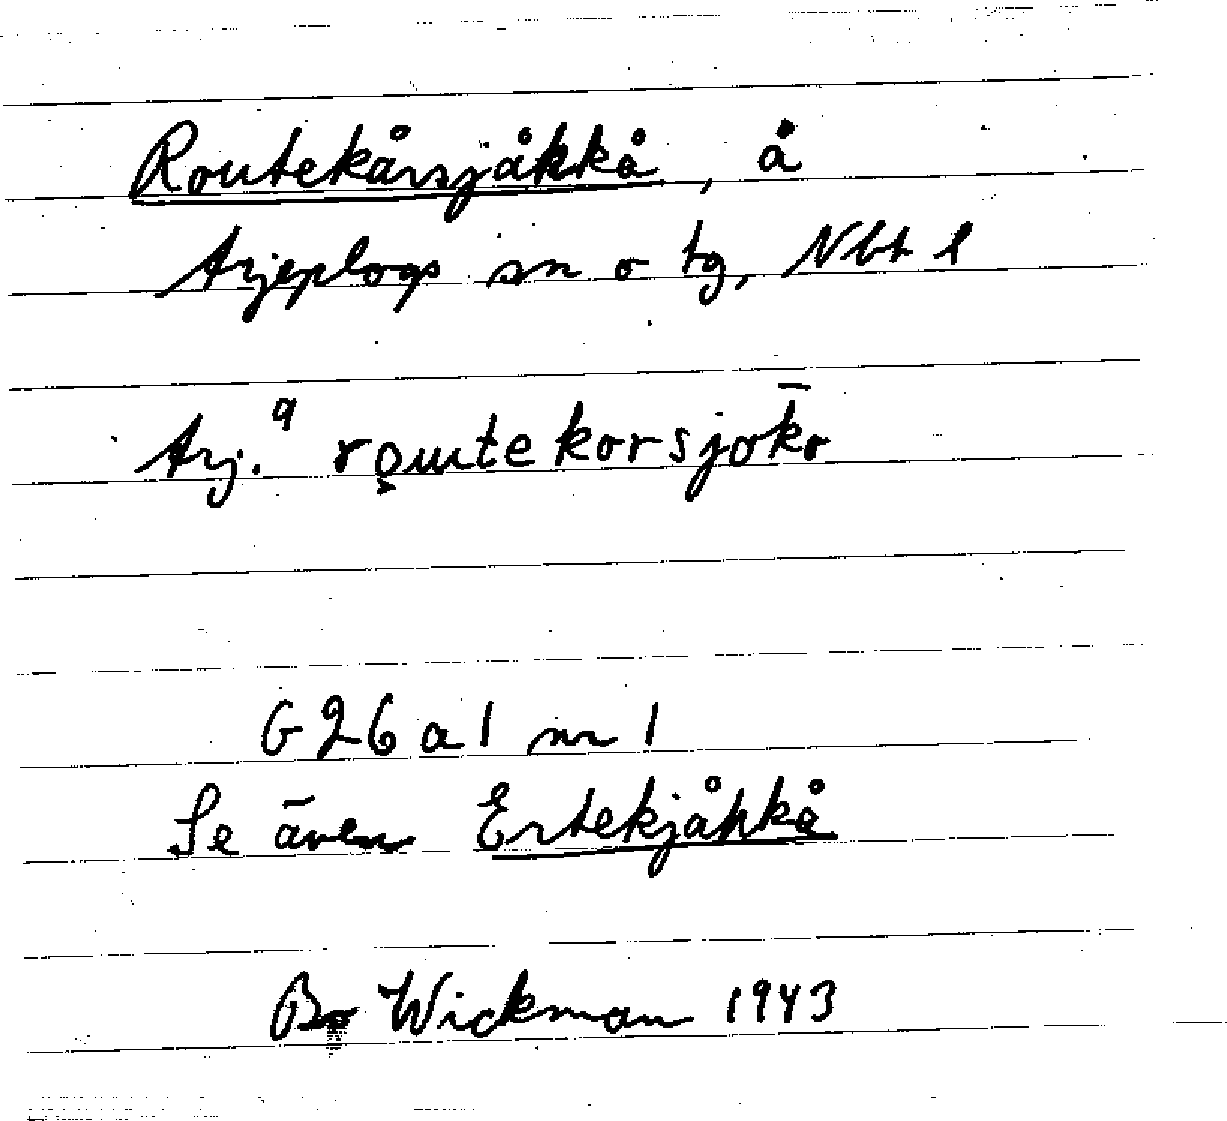 Routekårsjåkkå, å
Arjeplogs sn o tg, Nbt l
Arj. q ro̬utekorsjok̄o
G26a1 nr 1
Se även Ertekjåkkå
Bo Wickman 1943